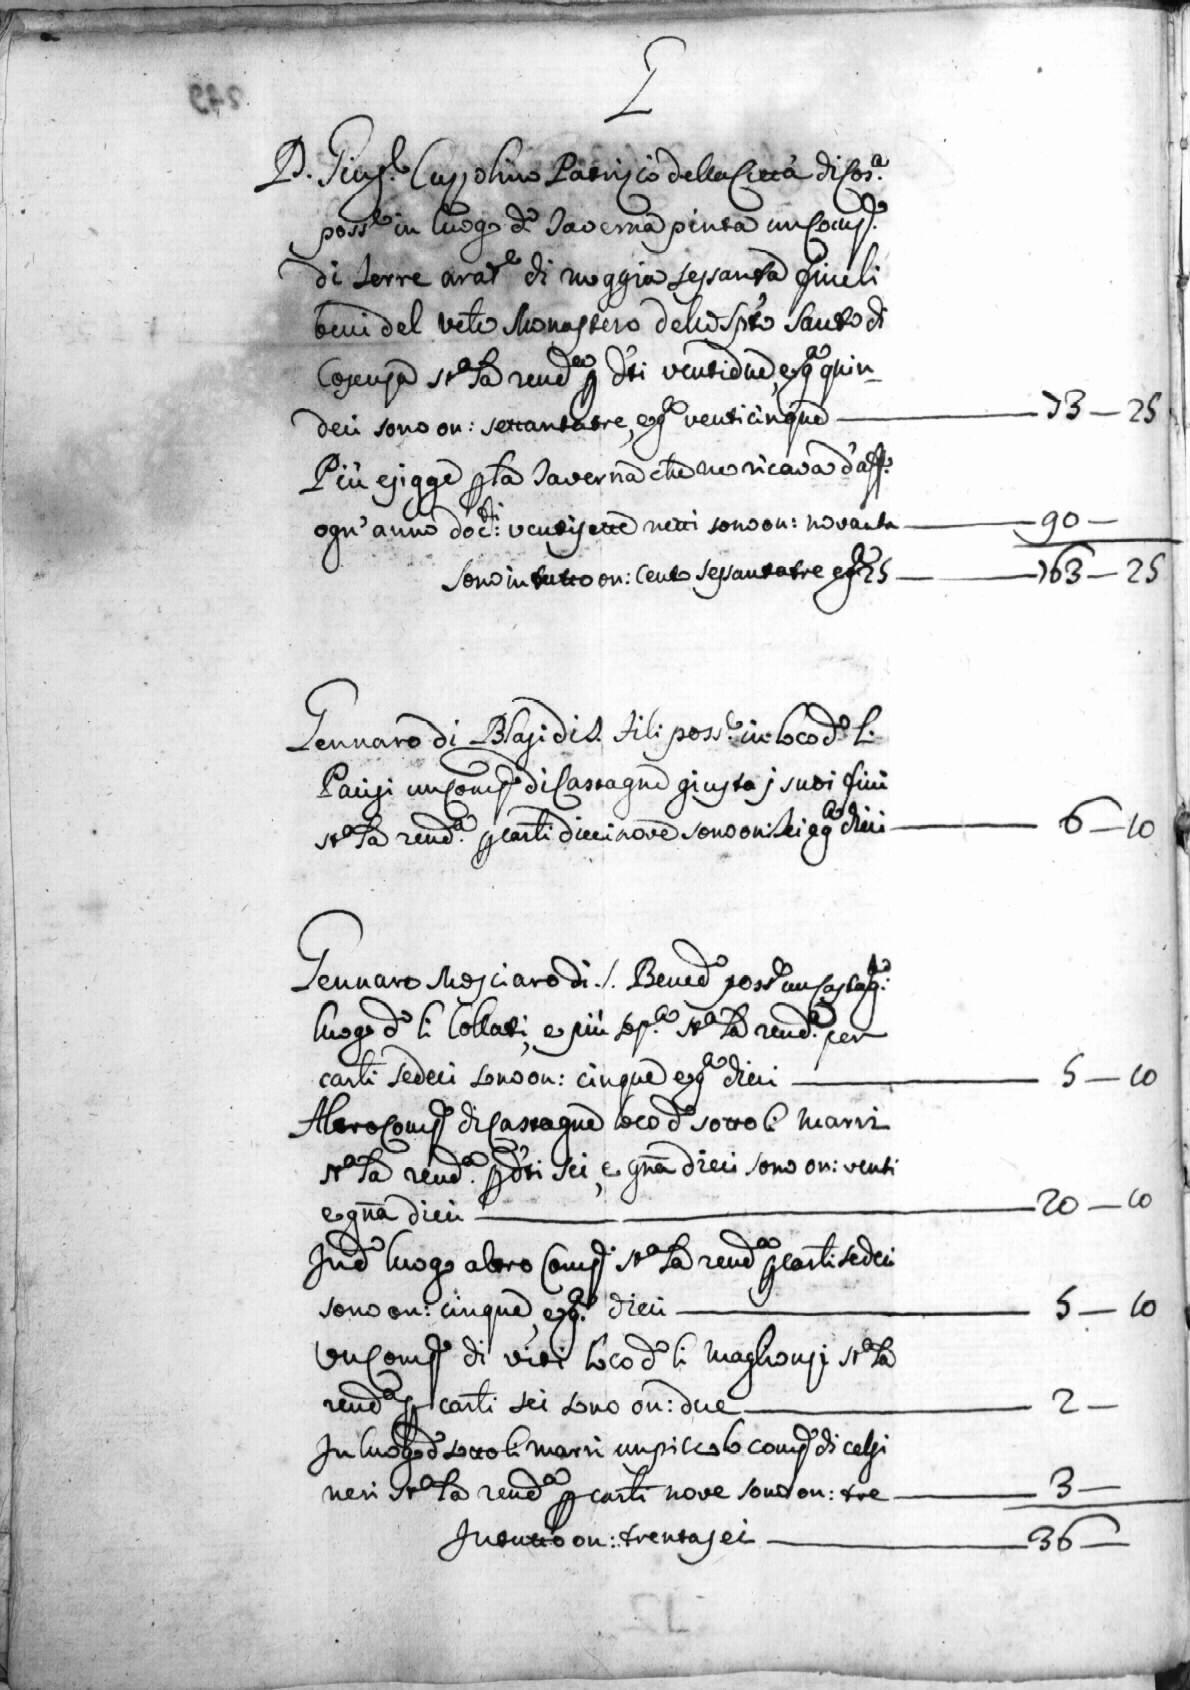 G
D. Gius.e Cuzzolino Patrizio della Città di Cos.a
poss.e in luogo d.o Taverna pinta un Comp.o
di terre arat.e di moggia sessanta fine li
beni del ven.le Monastero dello Sp.to Santo di
Cosenza st.a la rend.a p d.ti ventidue, e g.a quin_
deci sono on: settantatre, e g.a venticinque — 73 — 25
Più esigge p la Taverna che ne ricava d'aff.o
ogn' anno doc.ti: ventisette netti sono on: novanta — 90 —
Sono in tutto on: Cento sessantatre e g.a 25 — 163 — 25
Gennaro di Blasi di S. Fili poss.e in loco d.o li
Pansi un Comp.o di Castagne giusta j suoi fini
st.a la rend.a p carli diecinove sono on: sei e g.a dieci — 6 — 10
Gennaro Mosciaro di S. Bened.o poss.e un Castag.o:
luogo d.o li Collati, e più st.a la rend.a per
carli sedeci sono on: cinque e g.a dieci — 5 — 10
Altro Comp.o di Castagne loco d.o sotto li marri
st.a la rend.a p d.ti sei, e gna dieci sono on: venti
e gna dieci — 20 — 10
In d.o luogo altro Comp.o st.a la rend.a p carli sedeci
sono on: cinque, e g.a dieci — 5 — 10
Un Comp.o di viti loco d.o li st.a la
rend.a p carli sei sono on: due — 2 —
In luogo d.o sotto li marri un piccolo comp.o di celsi
neri st.a la rend.a p carli nove sono on: tre — 3 —
In tutto on: trentasei — 36 —